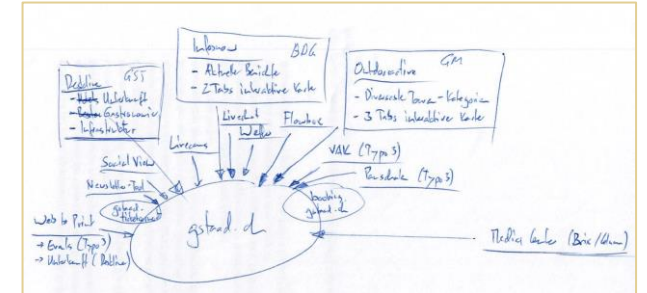 Infosnow BDG
- Aktueller Berichte
- 2 Tabs interaktive Karte
Deskline GST
- Unterkunft
- Gastronomie
- Infrastruktur
Outdooractive GM
- Diverse Touren-Kategorien
- 3 Tabs interaktive Karte
Livechat
Wetter
Flowbox
Livecams
Social View
Newsletter-Tool
VAK (Typo3)
Pauschale (Typo3)
gstaad.
booking.
gstaad.ch
gstaad.ch
Web to Print
→ Events (Typo3)
→ Unterkunft (Deskline)
Media Center (Brix/